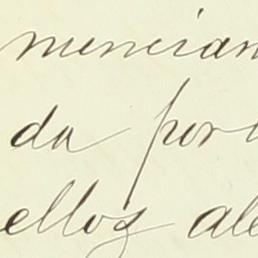 mencian
da por
ellos ale